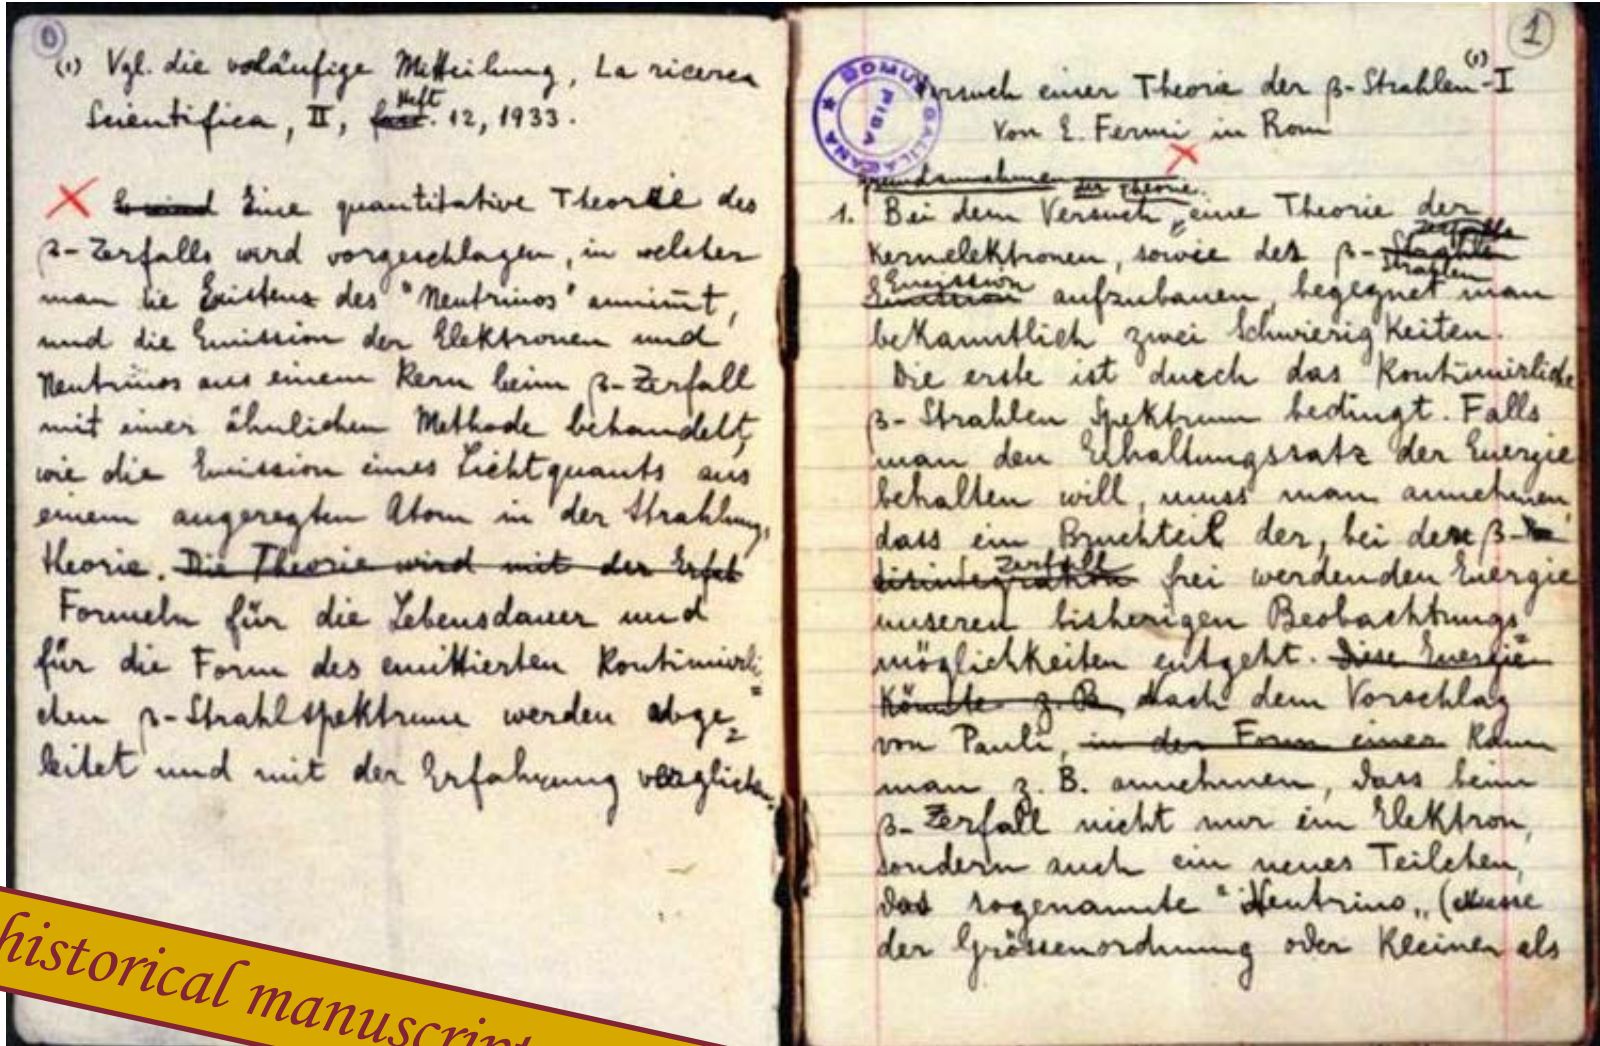 0
(1) Vgl. die voläufige Mitteilung, La ricerca
Scientifica, II, Heft 12, 1933.
Eine quantitative Theorie des
β-Zerfalls wird vorgeschlagen, in welcher
man die Existenz des "Neutrinos" annimt,
und die Emission der Elektronen und
Neutrinos aus einem Kern beim β-Zerfall
mit einer ähnlichen Methode behandelt,
wie die Emission eines Lichtquants aus
einem angeregten Atom in der Strahlung,
theorie. Die Theorie wird mit der Erfah
Formeln für die Lebensdauer und
für die Form des emittierten Kontinuierli=
chen β-Strahlspektrum werden abge=
leitet und mit der Erfahrung verglichen.
1
Versuch einer Theorie der β-Strahlen-I (1)
Von E. Fermi in Rom
DOMUS GALILAEANA
PISA
Grundannahmen der Theorie.
1. Bei dem Versuch, eine Theorie der
Kernelektronen, sowie der β-Strahlen
Emission aufzubauen, begegnet man
bekanntlich zwei Schwierigkeiten.
Die erste ist durch das Kontinuierliche
β-Strahlen Spektrum bedingt. Falls
man den Erhaltungssatz der Energie
behalten will, muss man annehmen,
dass ein Bruchteil der, bei dem β-
Zerfall frei werdenden Energie
unseren bisherigen Beobachtungs=
möglichkeiten entgeht. Diese Energie
Könnte z.B. Nach dem Vorschlag
von Pauli, in der Form einer Kann
man z. B. annehmen, dass beim
β-Zerfall nicht nur ein Elektron,
sondern auch ein neues Teilchen,
das sogenannte "Neutrino„ (Masse
der Grössenordnung oder Kleiner als
historical manuscript